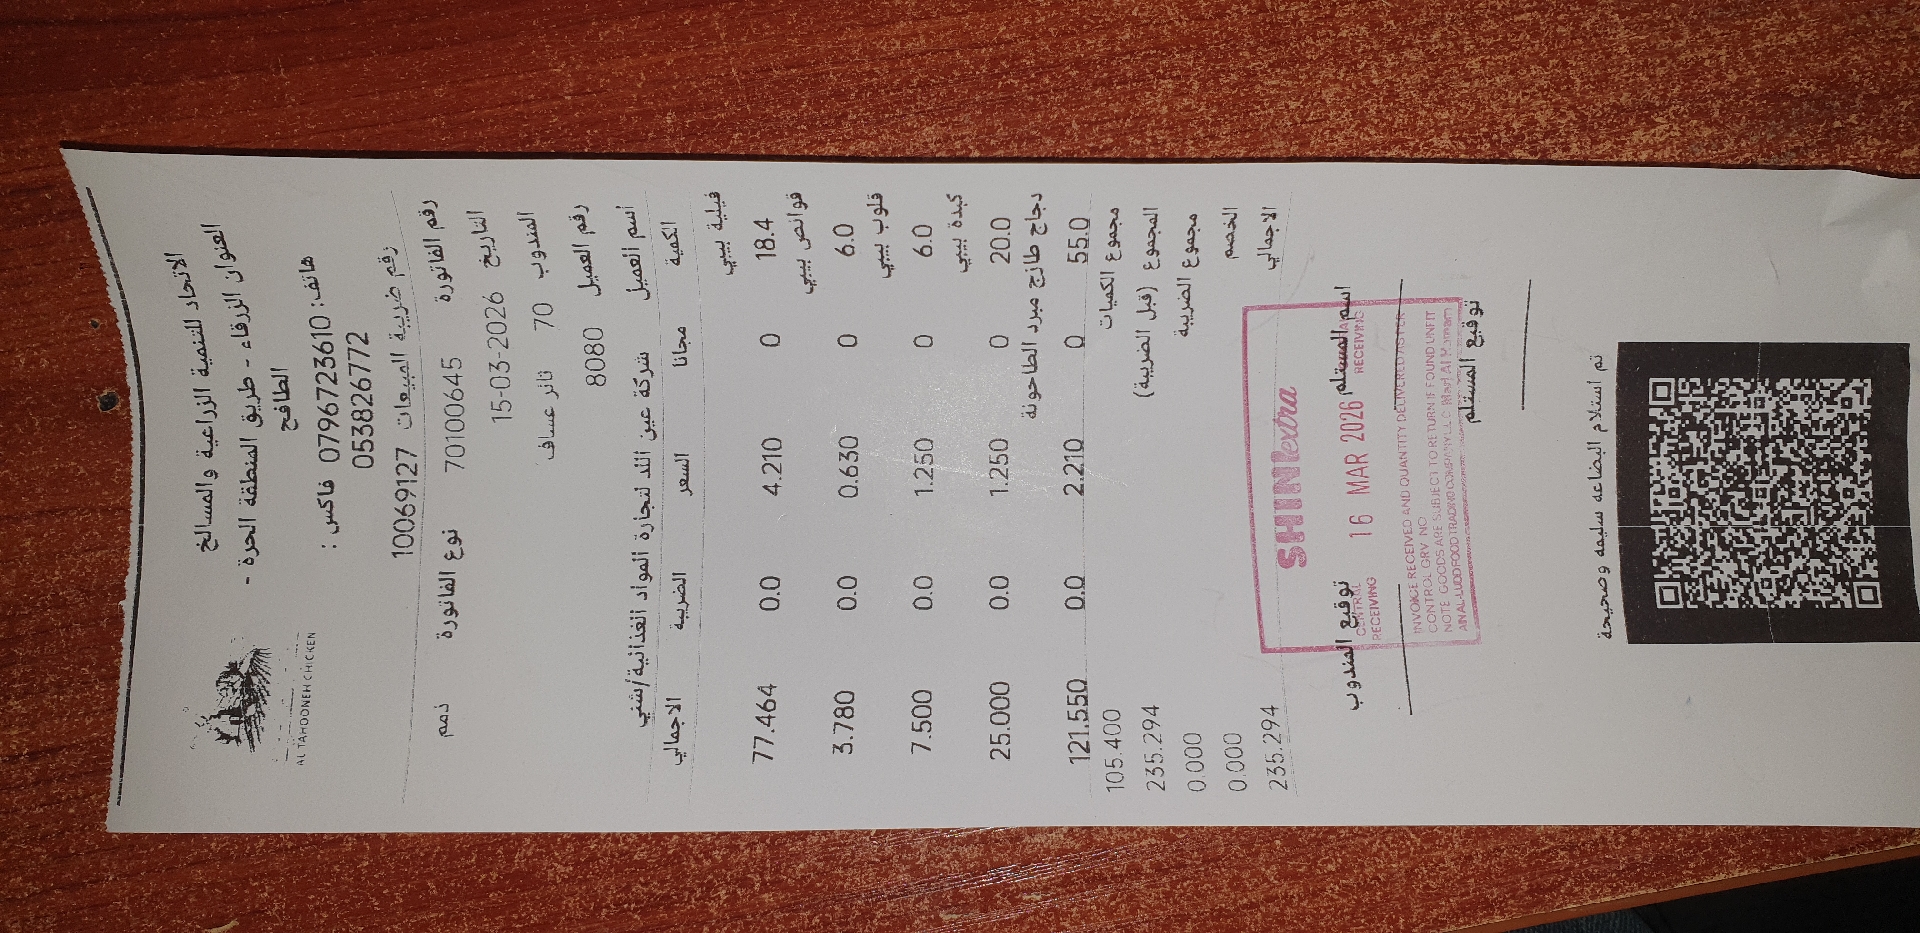 AL TAHOONEH CHICKEN
الاتحاد للتنمية الزراعية والمسالخ
العنوان الزرقاء - طريق المنطقة الحرة -
الطافح
هاتف: 0796723610 فاكس :
053826772
رقم ضريبة المبيعات 10069127
رقم الفاتورة 70100645 نوع الفاتورة ذمم
التاريخ 15-03-2026
المندوب 70 ثائر عساف
رقم العميل 8080
اسم العميل شركة عين اللد لتجارة المواد الغذائية/شني
الكمية مجانا السعر الضريبة الاجمالي
فيلية بيبي
18.4 0 4.210 0.0 77.464
قوانص بيبي
6.0 0 0.630 0.0 3.780
قلوب بيبي
6.0 0 1.250 0.0 7.500
كبدة بيبي
20.0 0 1.250 0.0 25.000
دجاج طازج مبرد الطاحونة
55.0 0 2.210 0.0 121.550
مجموع الكميات 105.400
المجموع (قبل الضريبة) 235.294
مجموع الضريبة 0.000
الخصم 0.000
الاجمالي 235.294
SHINIextra
اسم المستلم توقيع المندوب
CENTRAL RECEIVING 16 MAR 2026 RECEIVING
INVOICE RECEIVED AND QUANTITY DELIVERED AS PER
CONTROL GRV NO
NOTE GOODS ARE SUBJECT TO RETURN IF FOUND UNFIT
AIN AL-LUDD FOOD TRADING COMPANY L.L.C
توقيع المستلم
تم استلام البضاعه سليمه وصحيحة